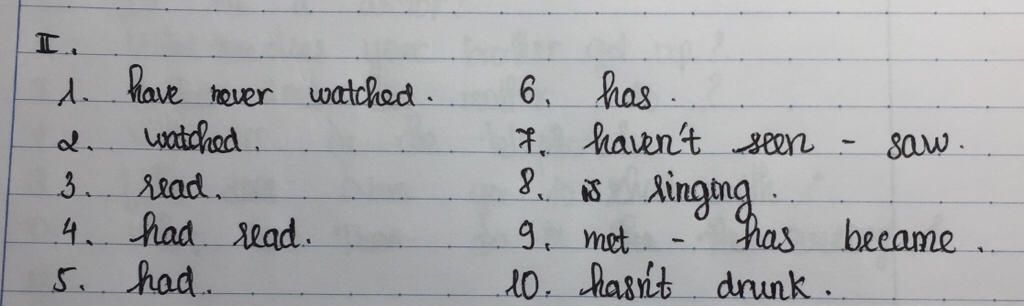 II.
1. have never watched.
2. watched.
3. read.
4. had read.
5. had.
6. has.
7. haven't seen - saw.
8. is singing.
9. met - has became.
10. hasn't drunk.